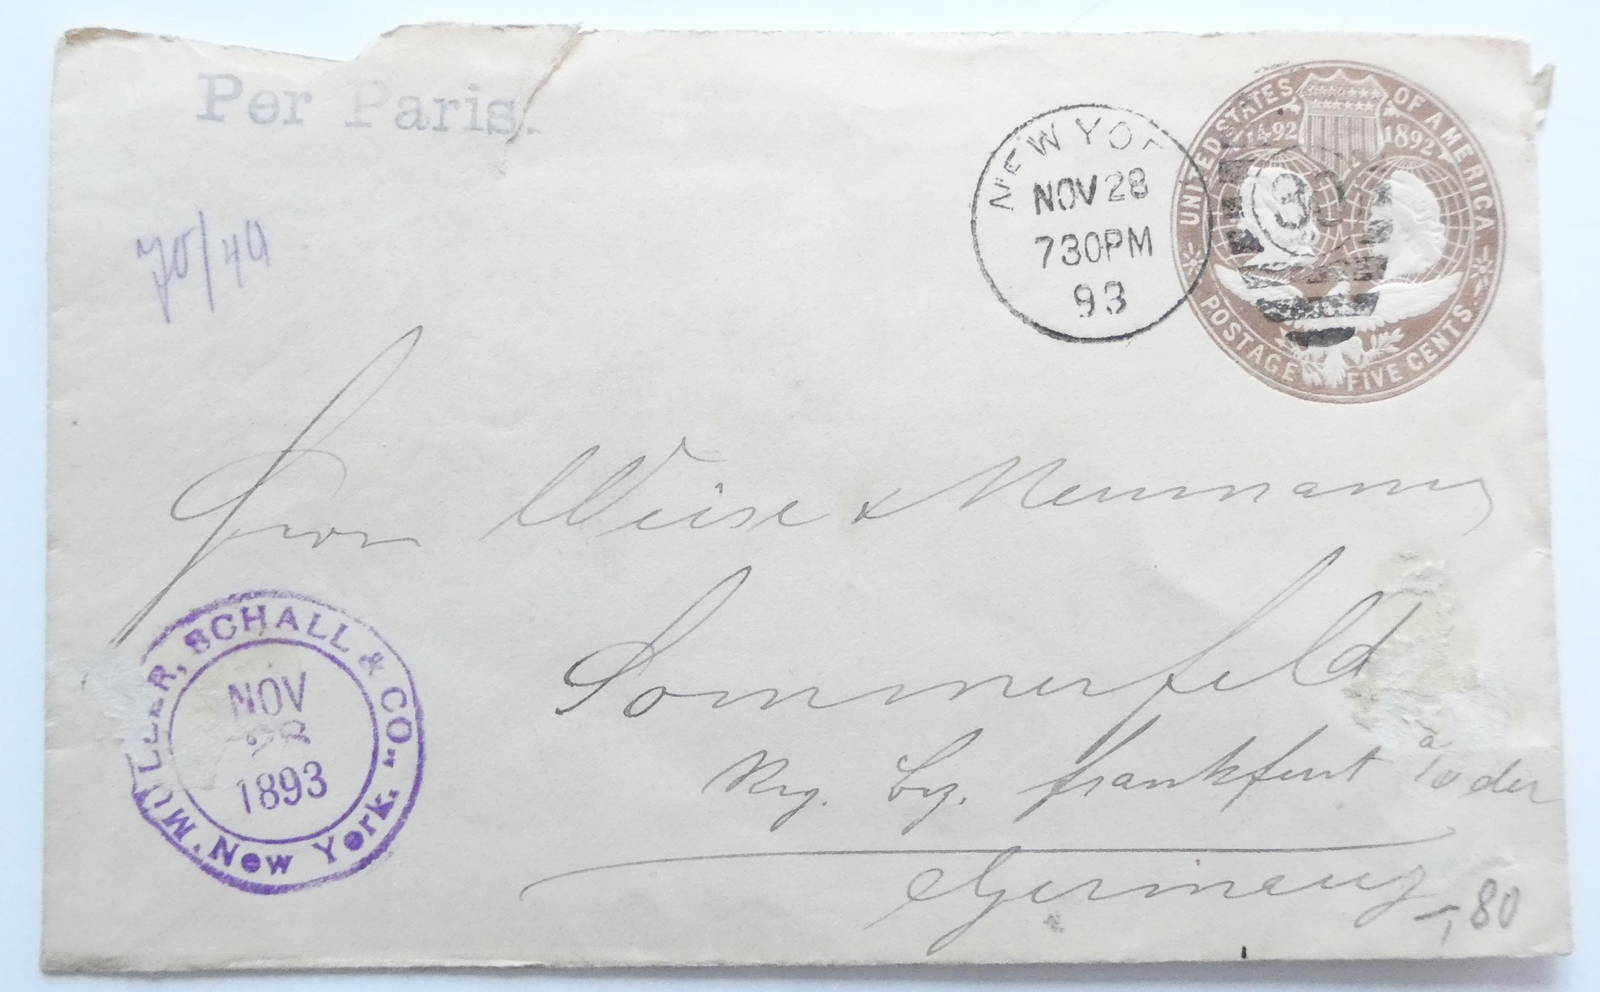 Per Paris.
NEW YOR
NOV 28
730PM
93
UNITED STATES OF AMERICA
1492 1892
POSTAGE FIVE CENTS
70/40
Herren Weise & Neumann
Sommerfeld
Rg. Bz. Frankfurt a/Oder
Germany
MULLER, SCHALL & CO.
NOV
28
1893
New York.
-,80